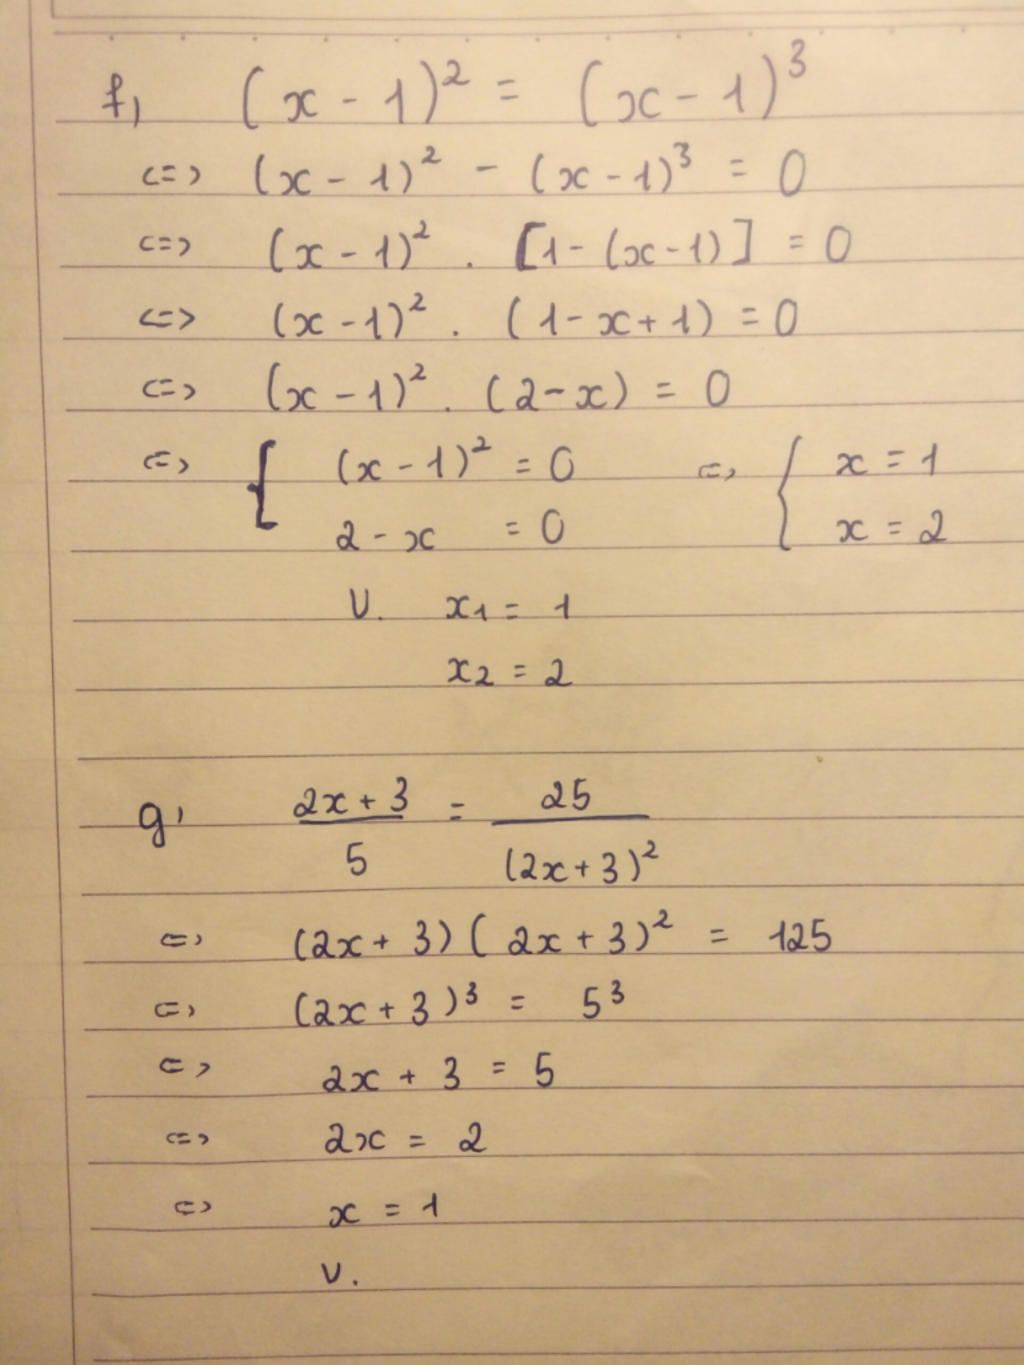 f, (x - 1)² = (x - 1)³
<=> (x - 1)² - (x - 1)³ = 0
<=> (x - 1)² . [1 - (x - 1)] = 0
<=> (x - 1)² . (1 - x + 1) = 0
<=> (x - 1)² . (2 - x) = 0
<=> { (x - 1)² = 0 <=> { x = 1
2 - x = 0 x = 2
V. x₁ = 1
x₂ = 2
g, (2x + 3)/5 = 25/(2x + 3)²
<=> (2x + 3)(2x + 3)² = 125
<=> (2x + 3)³ = 5³
<=> 2x + 3 = 5
<=> 2x = 2
<=> x = 1
V.